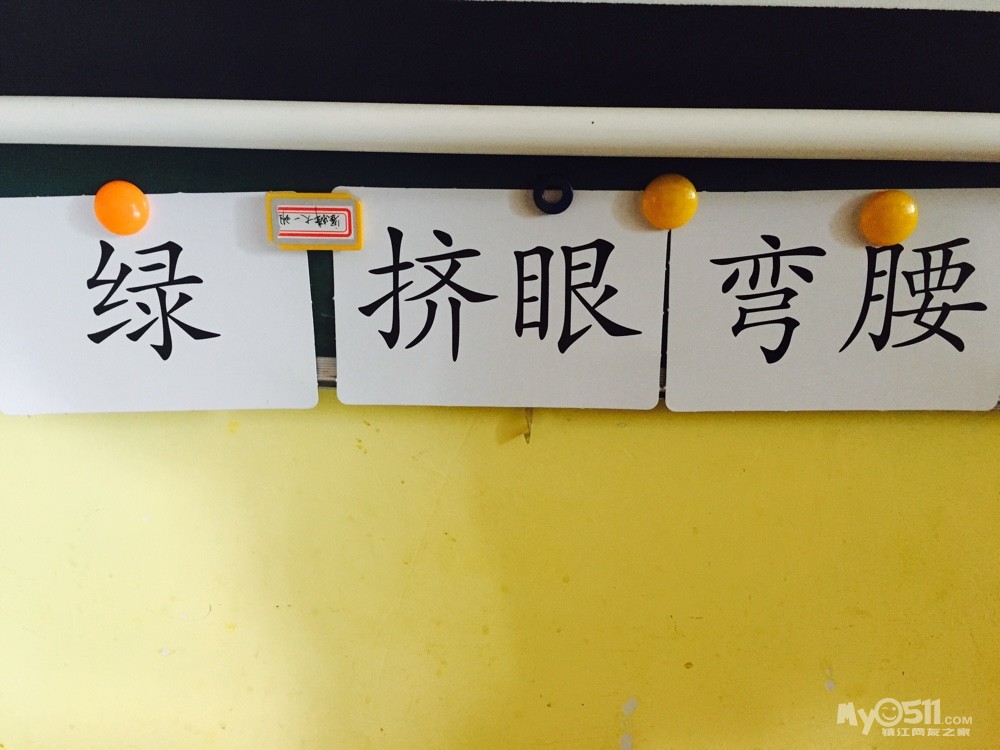 绿
挤眼
弯腰
My0511.COM
镇江网友之家